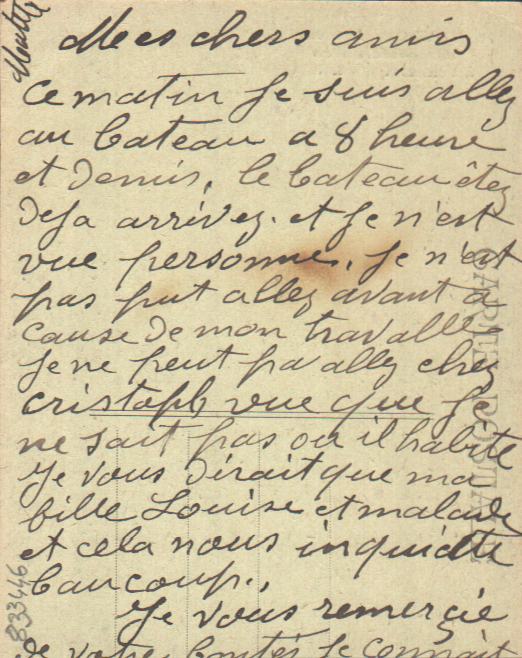 Mes chers amis
Ce matin Je suis allez
au bateau a 8 heure
et demis, le bateau êtez
deja arrivez. et Je n'est
vue personne, Je n'est
pas put allez avant a
cause de mon travalle
Je ne peut pa allez chez
cristoph vue que Je
ne sait pas ou il habite
Je vous dirait que ma
fille Louise et malade
et cela nous inquiette
baucoup.
Je vous remerçie
de votre bontés Je connait
CARTE POSTALE
833446